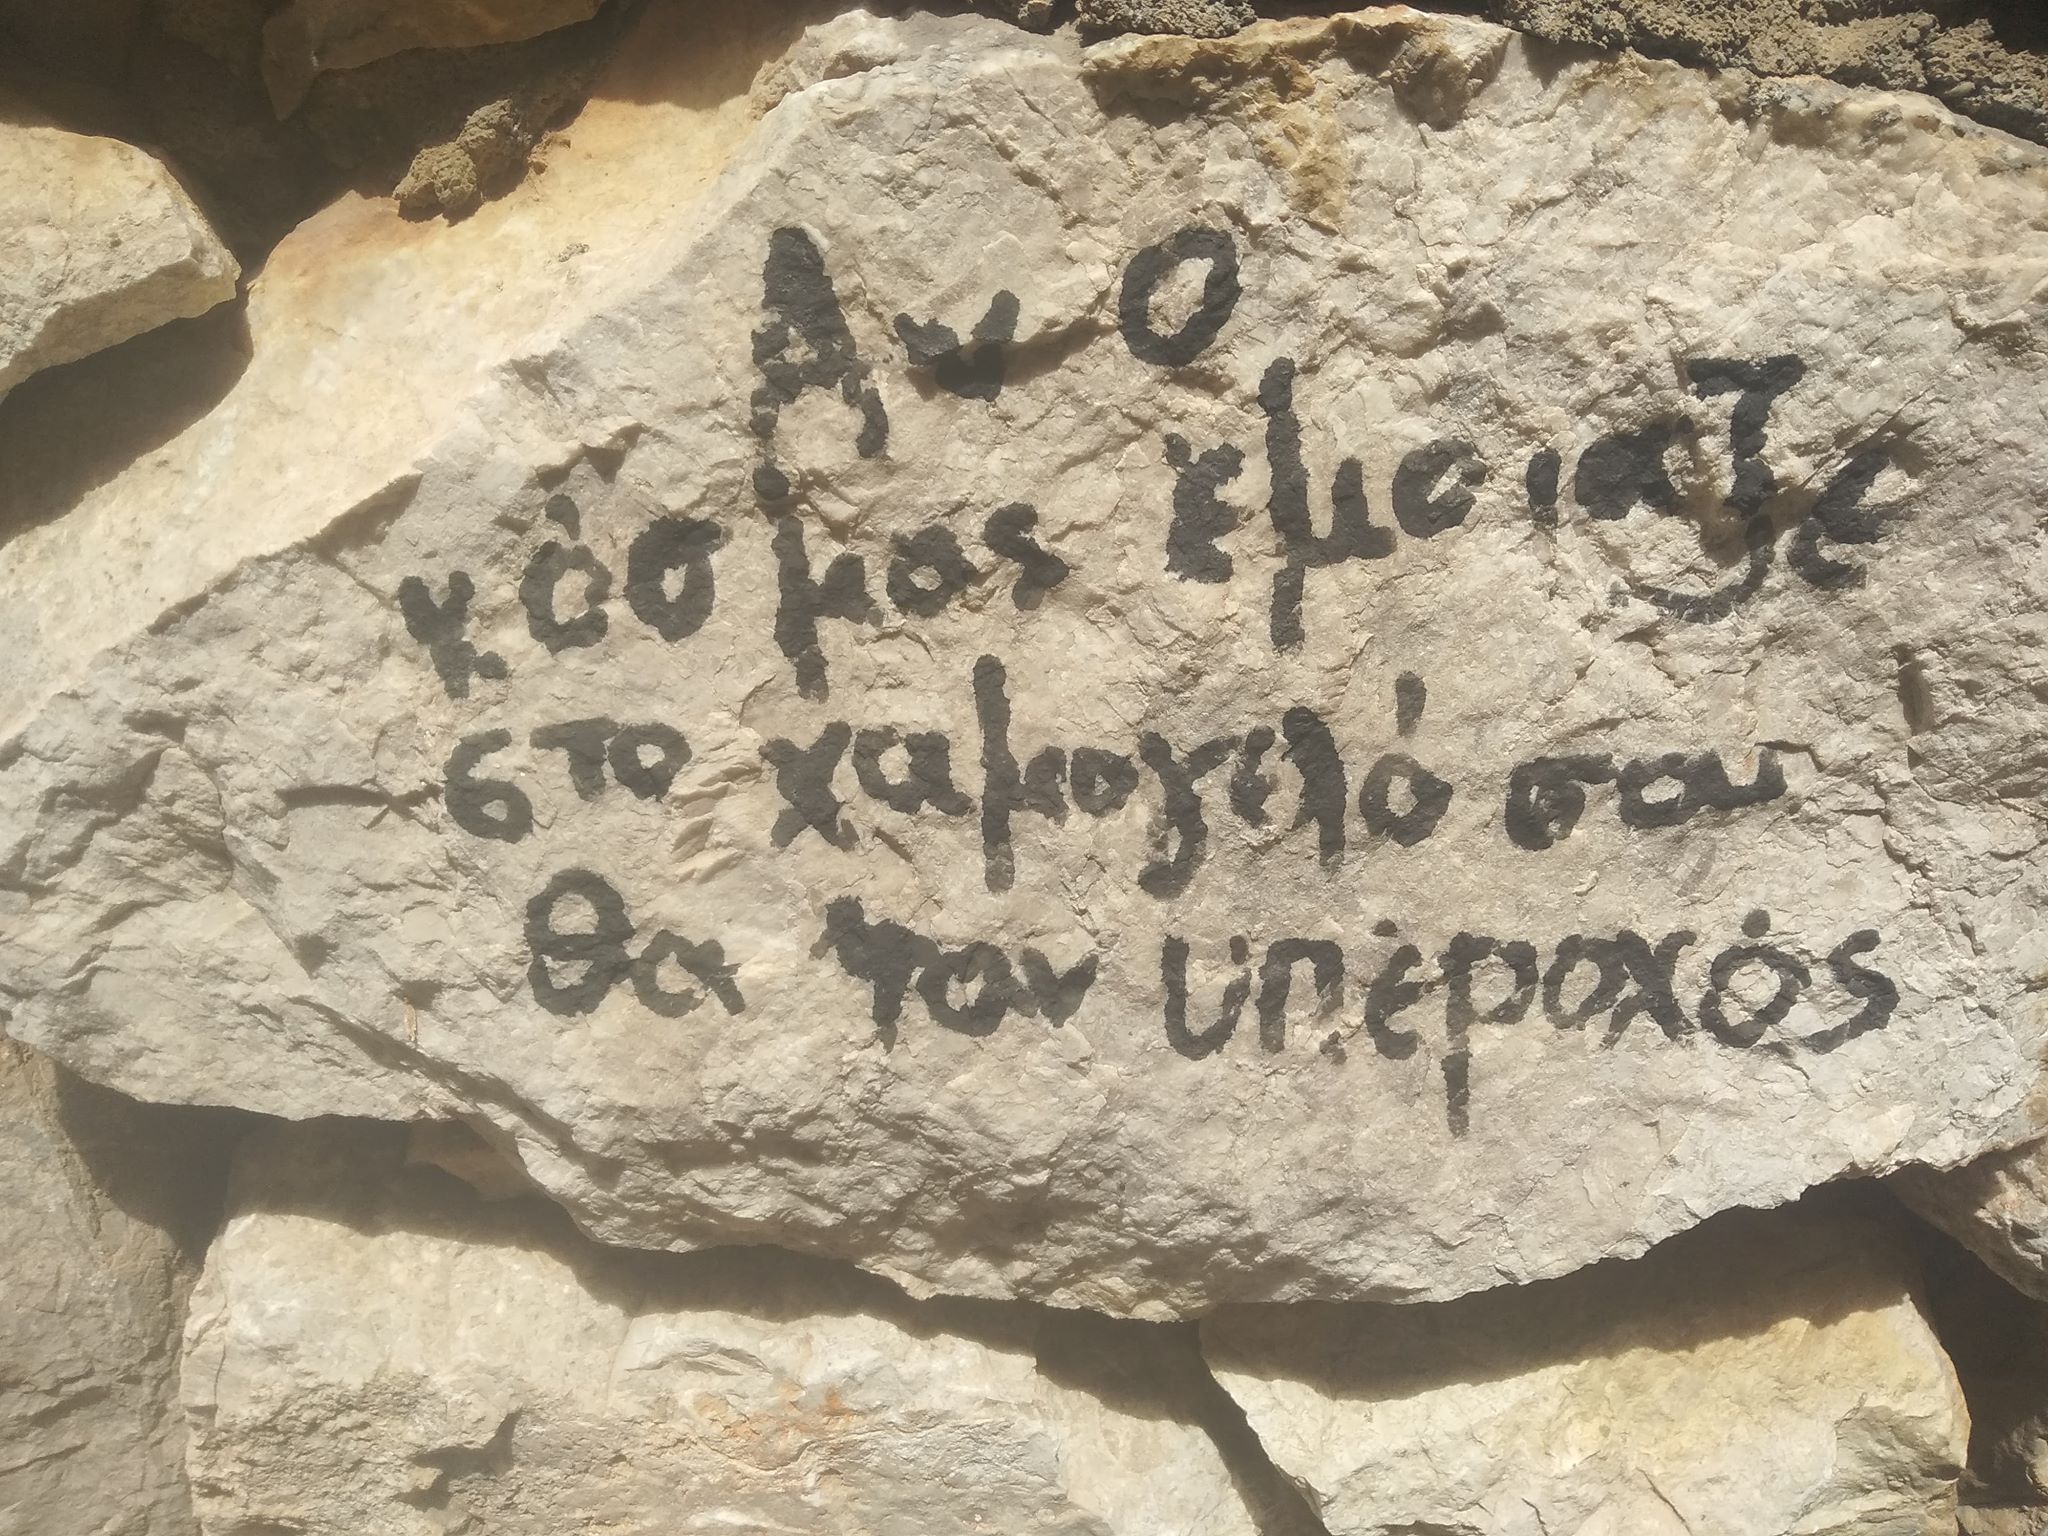 Αν ο
κόσμος έμοιαζε
στο χαμογελό σου
θα ταν υπέροχός